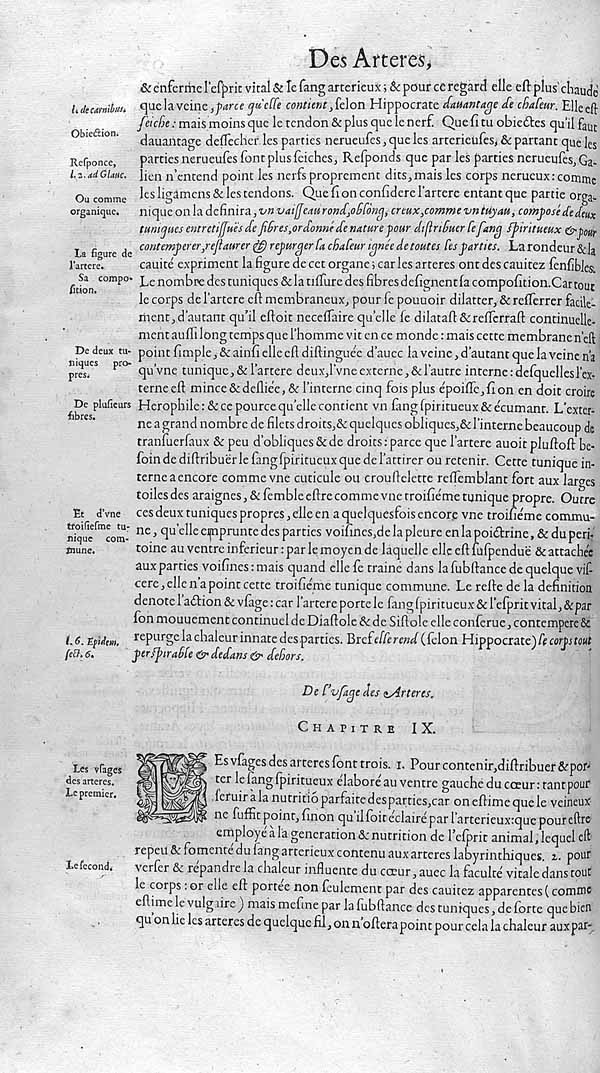 Des Arteres,
& enferme l'eſprit vital & le ſang arterieux; & pour ce regard elle eſt plus chaude
l. de carnibus.
que la veine, parce qu'elle contient, ſelon Hippocrate dauantage de chaleur. Elle eſt
ſeiche: mais moins que le tendon & plus que le nerf. Que ſi tu obiectes qu'il faut
Obiection.
dauantage deſſecher les parties nerueuſes, que les arterieuſes, & partant que les
Reſponce,
parties nerueuſes ſont plus ſeiches, Reſponds que par les parties nerueuſes, Ga-
l. 2. ad Glauc.
lien n'entend point les nerfs proprement dits, mais les corps nerueux: comme
les ligamens & les tendons. Que ſi on conſidere l'artere entant que partie orga-
Ou comme
organique.
nique on la definira, vn vaiſſeau rond, oblong, creux, comme vn tuyau, compoſé de deux
tuniques entretiſſuës de fibres, ordonné de nature pour diſtribuer le ſang ſpiritueux & pour
contemperer, reſtaurer & repurger la chaleur ignée de toutes les parties. La rondeur & la
La figure de
l'artere.
cauité expriment la figure de cet organe; car les arteres ont des cauitez ſenſibles.
Sa compo-
ſition.
Le nombre des tuniques & la tiſſure des fibres deſignent ſa compoſition. Car tout
le corps de l'artere eſt membraneux, pour ſe pouuoir dilatter, & reſſerrer facile-
ment, d'autant qu'il eſtoit neceſſaire qu'elle ſe dilataſt & reſſerraſt continuelle-
ment auſſi long temps que l'homme vit en ce monde: mais cette membrane n'eſt
De deux tu-
niques pro-
pres.
point ſimple, & ainſi elle eſt diſtinguée d'auec la veine, d'autant que la veine n'a
qu'vne tunique, & l'artere deux, l'vne externe, & l'autre interne: deſquelles l'ex-
terne eſt mince & deſliée, & l'interne cinq fois plus époiſſe, ſi on en doit croire
De pluſieurs
fibres.
Herophile: & ce pource qu'elle contient vn ſang ſpiritueux & écumant. L'exter-
ne a grand nombre de filets droits, & quelques obliques, & l'interne beaucoup de
tranſuerſaux & peu d'obliques & de droits: parce que l'artere auoit pluſtoſt be-
ſoin de diſtribuër le ſang ſpiritueux que de l'attirer ou retenir. Cette tunique in-
terne a encore comme vne cuticule ou crouſtelette reſſemblant fort aux larges
toiles des araignes, & ſemble eſtre comme vne troiſiéme tunique propre. Outre
Et d'vne
troiſieſme tu-
nique com-
mune.
ces deux tuniques propres, elle en a quelquesfois encore vne troiſiéme commu-
ne, qu'elle emprunte des parties voiſines, de la pleure en la poictrine, & du peri-
toine au ventre inferieur: par le moyen de laquelle elle eſt ſuſpenduë & attachée
aux parties voiſines: mais quand elle ſe traine dans la ſubſtance de quelque viſ-
cere, elle n'a point cette troiſiéme tunique commune. Le reſte de la definition
denote l'action & vſage: car l'artere porte le ſang ſpiritueux & l'eſprit vital, & par
ſon mouuement continuel de Diaſtole & de Siſtole elle conſerue, contempere &
l. 6. Epidem.
ſect. 6.
repurge la chaleur innate des parties. Bref elle rend (ſelon Hippocrate) le corps tout
perſpirable & dedans & dehors.
De l'vſage des Arteres.
CHAPITRE IX.
Les vſages
des arteres.
Le premier.
LEs vſages des arteres ſont trois. 1. Pour contenir, diſtribuer & por-
ter le ſang ſpiritueux élaboré au ventre gauche du cœur: tant pour
ſeruir à la nutritiõ parfaite des parties, car on eſtime que le veineux
ne ſuffit point, ſinon qu'il ſoit éclairé par l'arterieux: que pour eſtre
employé à la generation & nutrition de l'eſprit animal, lequel eſt
repeu & fomenté du ſang arterieux contenu aux arteres labyrinthiques. 2. pour
Le ſecond.
verſer & répandre la chaleur influente du cœur, auec la faculté vitale dans tout
le corps: or elle eſt portée non ſeulement par des cauitez apparentes (comme
eſtime le vulgaire) mais meſme par la ſubſtance des tuniques, de ſorte que bien
qu'on lie les arteres de quelque fil, on n'oſtera point pour cela la chaleur aux par-